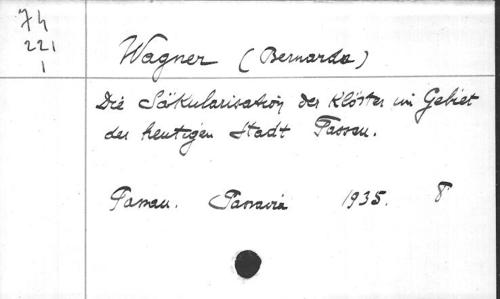 7h
221
1
Wagner (Bernarda)
Die Säkularisation der Klöster im Gebiet
der heutigen Stadt Passau.
Passau. Passavia 1935. 8